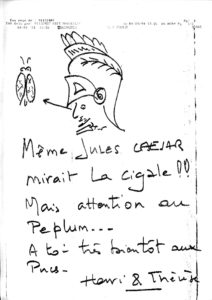 Même Jules CAESAR
mirait La cigale !!
Mais attention au
Peplum...
A toi très bientôt aux
Puces.
Henri & Thérèse